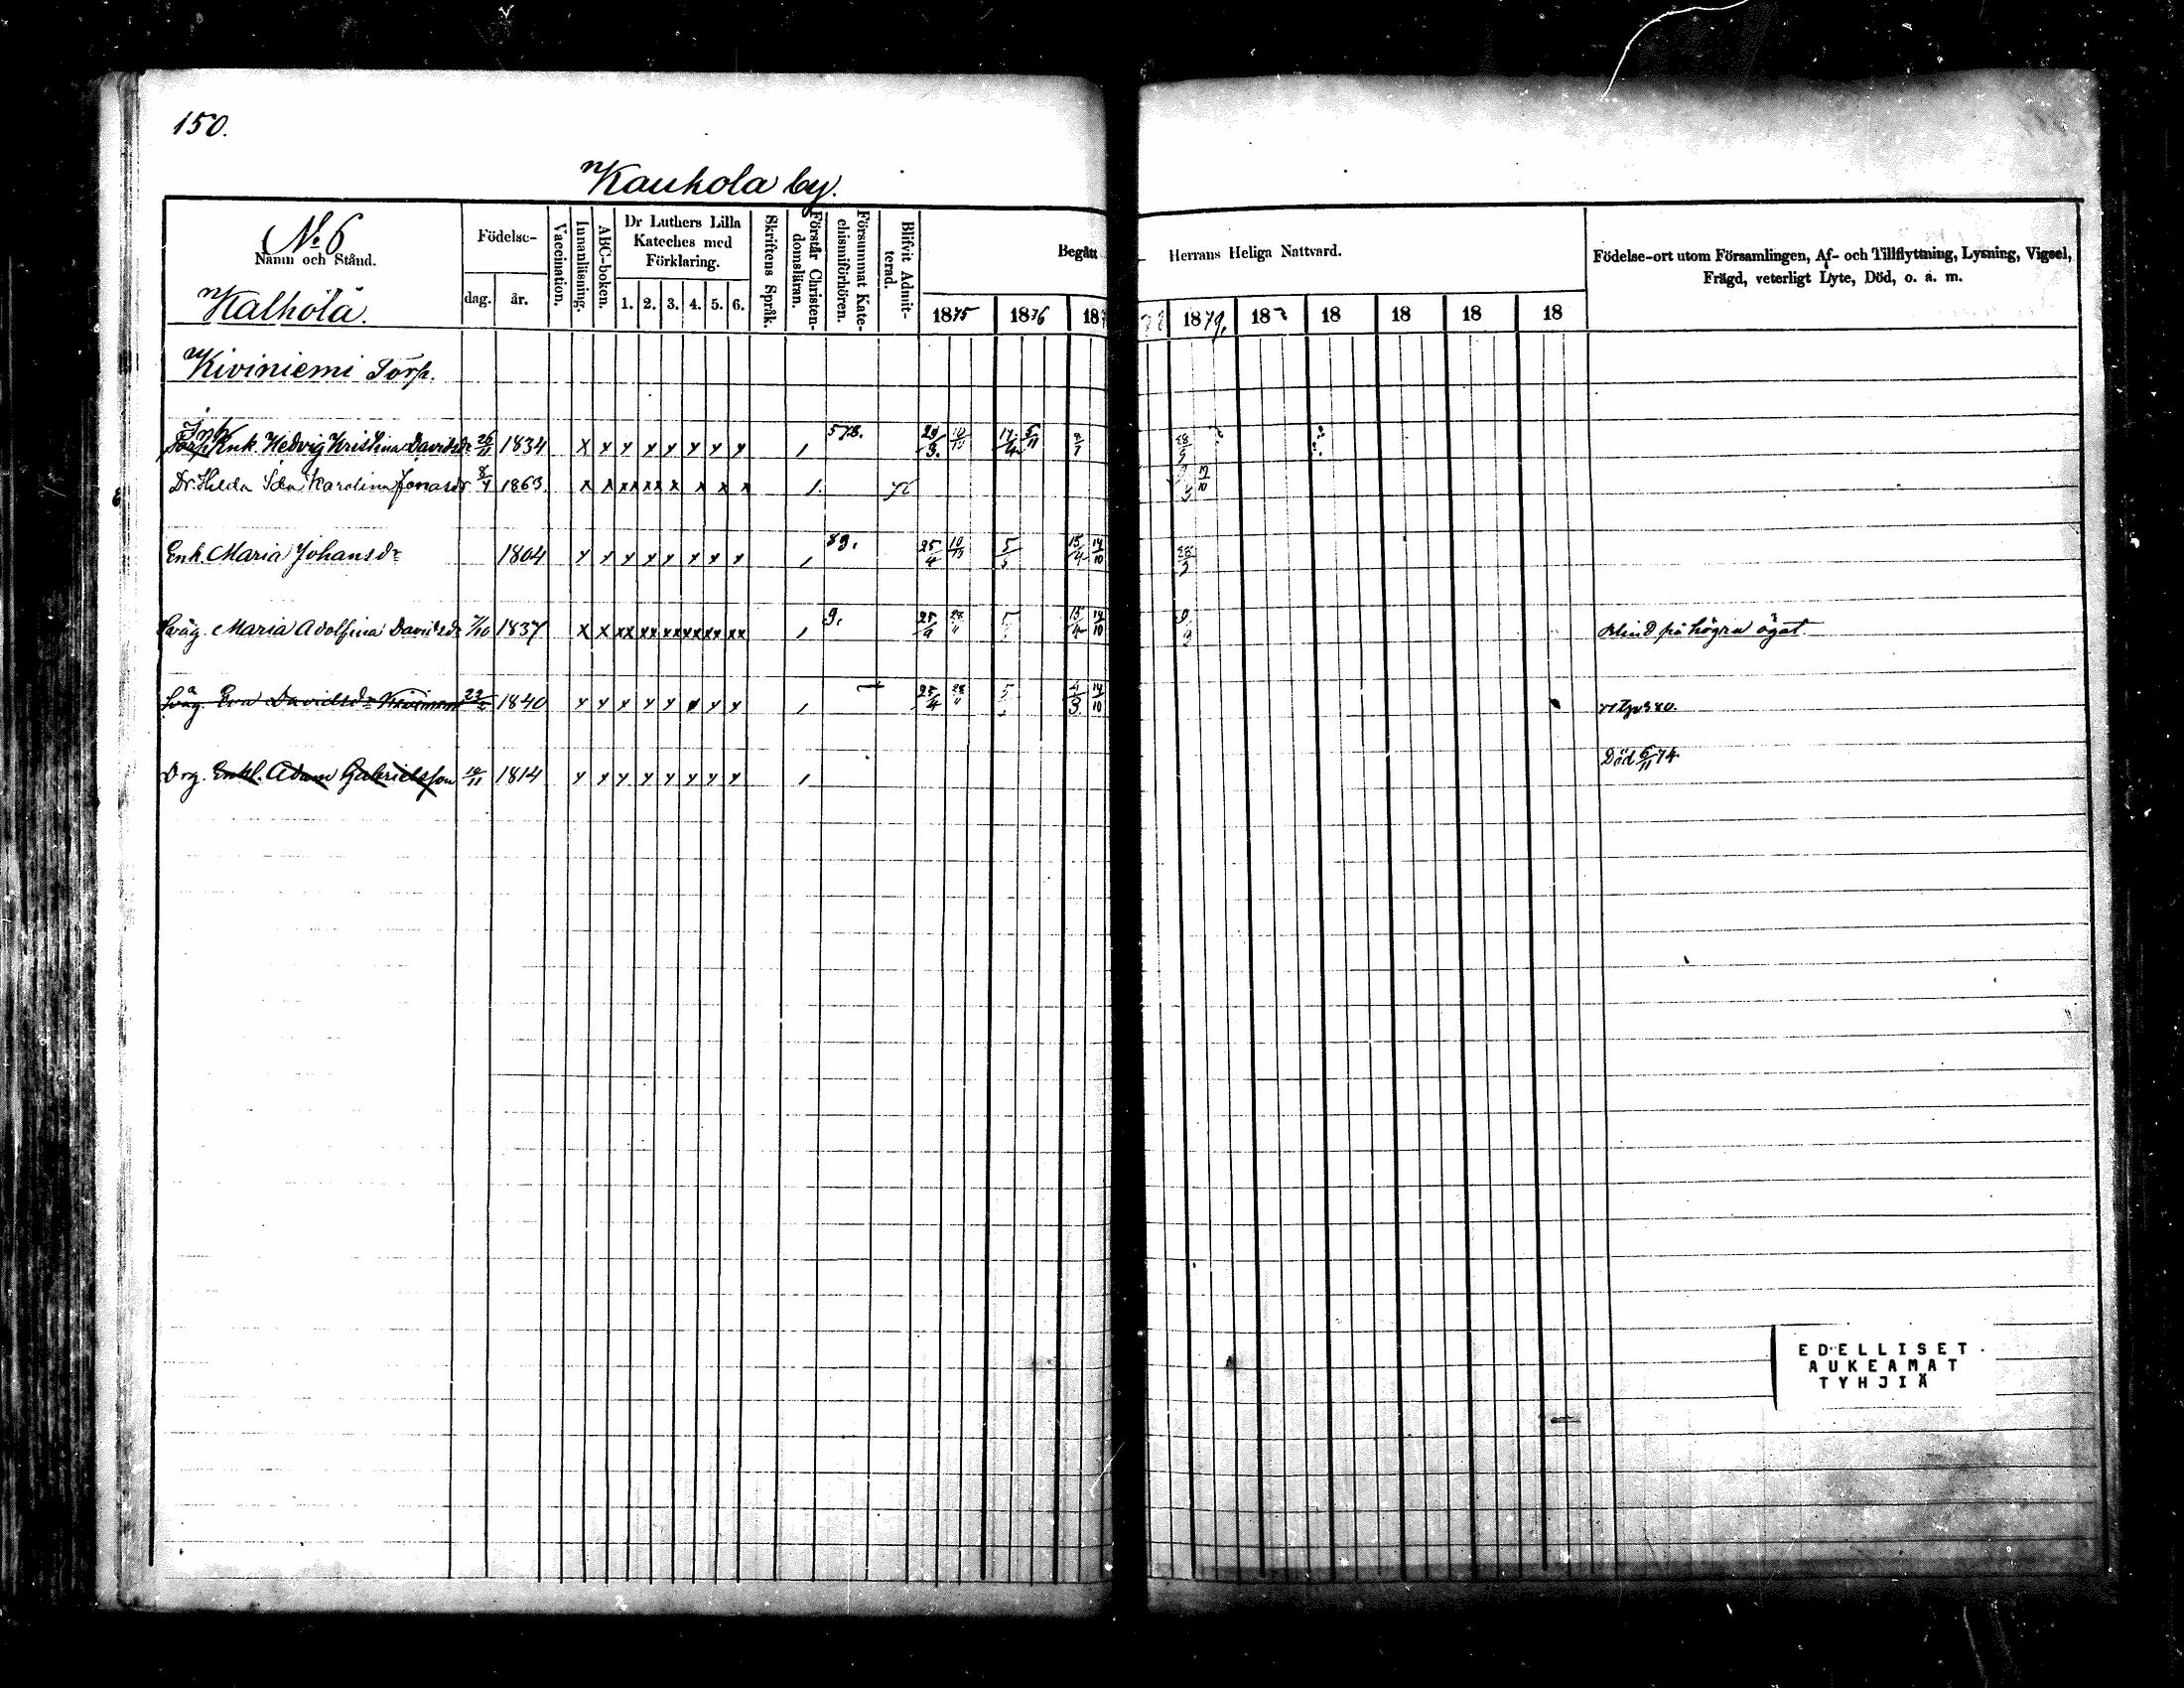 150.
Kauhola by.
No 6
Namn och Stånd.
Kalhola.
Födelse-
dag. år.
Vaccination.
Innanläsning.
ABC-boken.
Dr Luthers Lilla Kateches med Förklaring.
1. 2. 3. 4. 5. 6.
Skriftens Språk.
Förstår Christendomsläran.
Försummat Katechismiförhören.
Blifvit Admitterad.
Begått Herrans Heliga Nattvard.
1875 1876 187 1879. 187 18 18 18 18
Födelse-ort utom Församlingen, Af- och Tillflyttning, Lysning, Vigsel,
Frägd, veterligt Lyte, Död, o. a. m.
Kiviniemi Torp.
Inh
Torp. Enk. Hedvig Kristina Davidsdr 26/11 1834 x y y y y y y y / 578. 10/10 17/4 5/11
Dr. Hilda Ida Karolina Jonasdr 8/4 1863. x x xx xx x x x x 1. 12/10
Enk. Maria Johansdr 1804 y y y y y y y y / 89. 25/4 10/10 15/4 14/10
Swäg. Maria Adolfina Davidsdr 7/10 1837 x x xx xx xx xx xx xx / 9. 25/4 28/11 15/4 14/10 Blind på högra ögat
Swäg. Eva Davidsdr Kiviniemi 1840 y y y y y y y / 25/4 28/11 4/3 14/10
Drg. Enkl. Adam Gabrielsson 10/11 1814 y y y y y y y y / Död 5/11 74
EDELLISET
AUKEAMAT
TYHJIÄ